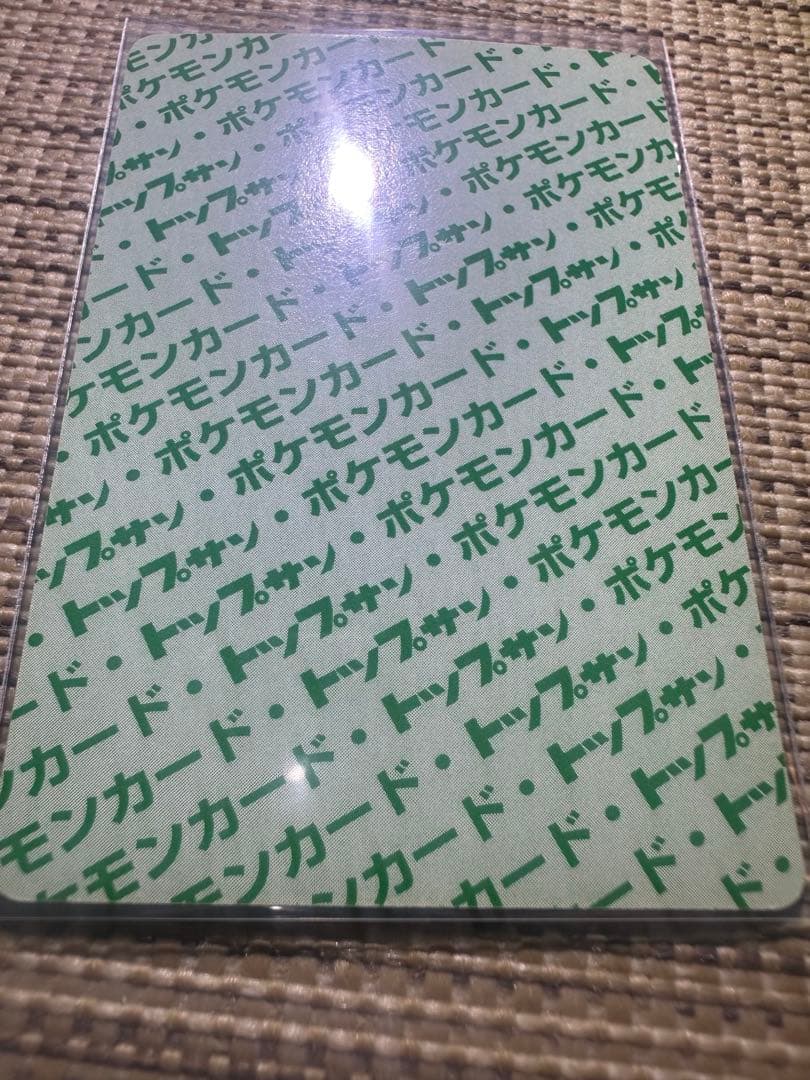 モンカード・
ポケモンカード・
・ポケモンカード・
トップサン・ポケモンカード・
トップサン・ポケモンカード
・トップサン・ポケモンカード
ード・トップサン・ポケモンカ
ンカード・トップサン・ポケモン
ケモンカード・トップサン・ポケ
・ポケモンカード・トップサン・ポ
サン・ポケモンカード・トップサン
トップサン・ポケモンカード・トップ
トップサン・ポケモンカード・ト
・トップサン・ポケモンカード
ード・トップサン・ポケモンカー
ンカード・トップサン・ポケモン
モンカード・トップサン・ポケ
ケモンカード・トップサン・
モンカード・トップサ
ンカード・トッ
カード・
ド・